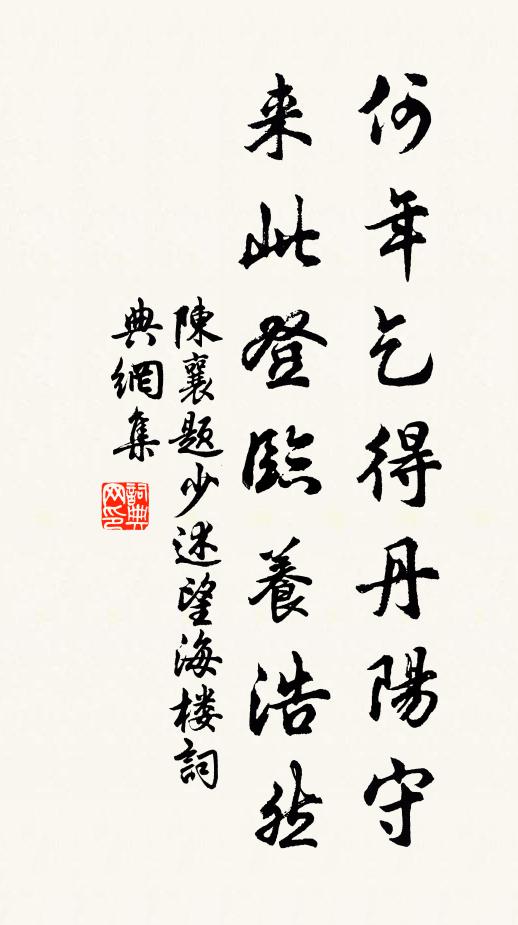 何年乞得丹陽守
来此登臨養浩然
陳襄題少述望海楼詞
典網集
詞典网印